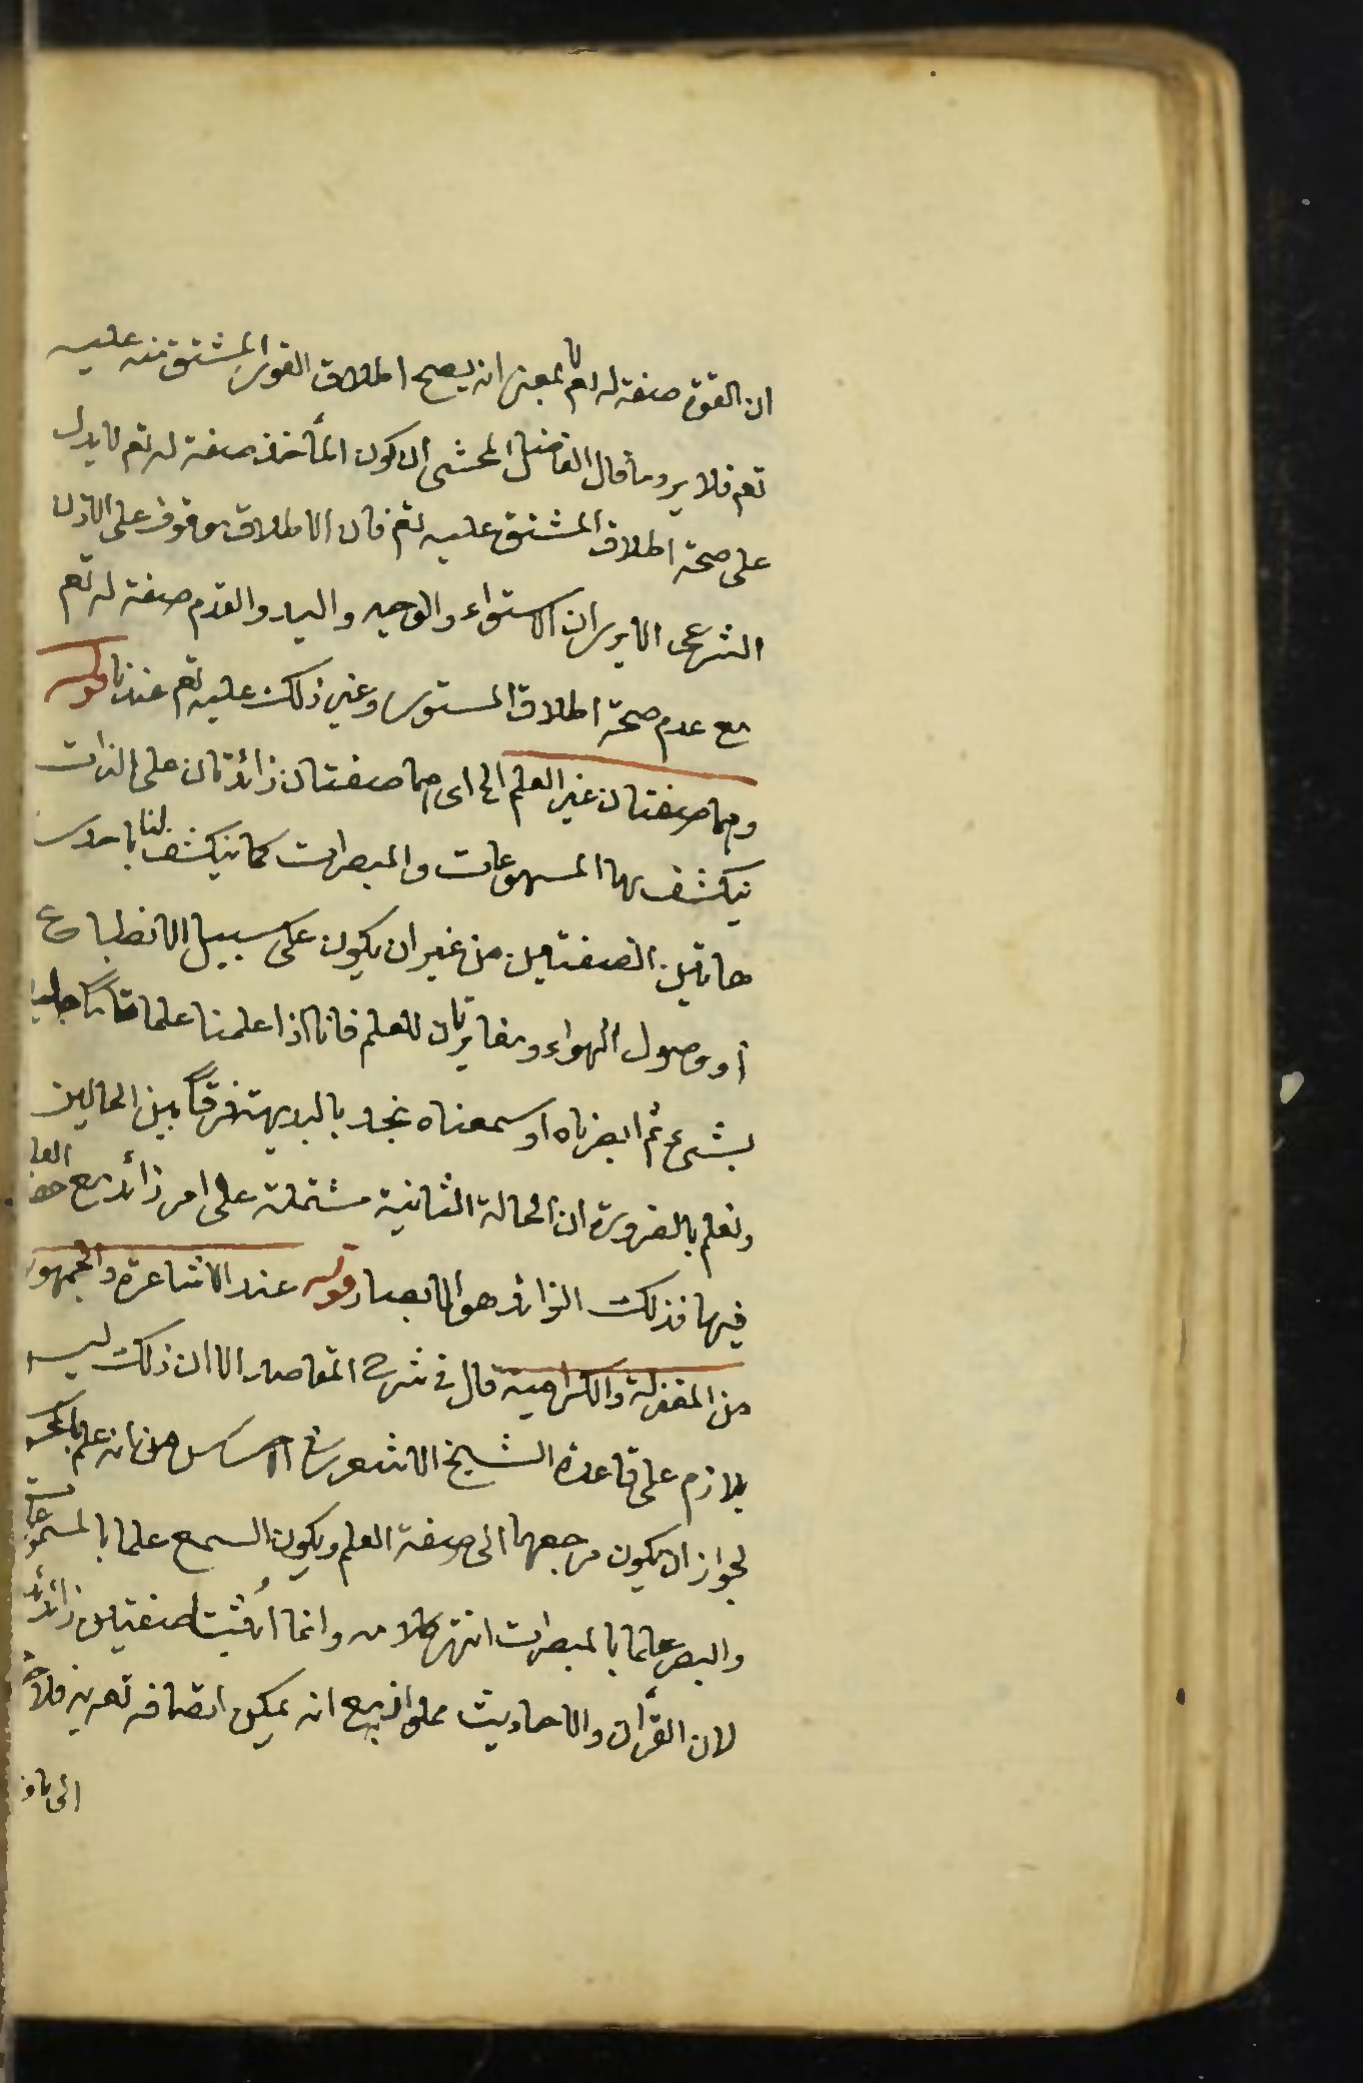 ان القوة صفة له تع لا بمعنى انه يصح اطلاق القوى المشتق منه عليه
تع فلا يرد ما قال الفاضل المحشى ان كون المأخذ صفة له تع لا يدل
على صحة اطلاق المشتق عليه تع فان الاطلاق موقوف على الاذن
الشرعى الا يرى ان الاستواء والوجه واليد والقدم صفة له تع
مع عدم صحة اطلاق المستوى وغير ذلك عليه تع عندنا قوله
وهما صفتان غير العلم الخ اى هما صفتان زائدتان على الذات
ينكشف بهما المسموعات والمبصرات كما ينكشف لنا باحدى
هاتين الصفتين من غير ان يكون على سبيل الانطباع
او وصول الهواء ومغايرتان للعلم فانا اذا علمنا علما تاما جليا
بشئ ثم ابصرناه او سمعناه نجد بالبديهة فرقا بين الحالين
ونعلم بالضرورة ان الحالة الثانية مشتملة على امر زائد مع
فيها فذلك الزائد هو الابصار قوله عند الاشاعرة والجمهور
من المعتزلة والكرامية قال فى شرح المقاصد الا ان ذلك ليس
بلازم على قاعدة الشيخ الاشعرى فى الاحساس من انه علم بالمحسو
لجواز ان يكون مرجعهما الى صفة العلم ويكون السمع علما بالمسموعات
والبصر علما بالمبصرات انتهى كلامه وانما اثبتا صفتين زائد
لان القرآن والاحاديث مملو انه مع انه يمكن اتصافه تع به فلا
الى